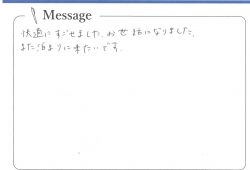 Message
快適にすごせました。お世話になりました。
また泊まりに来たいです。